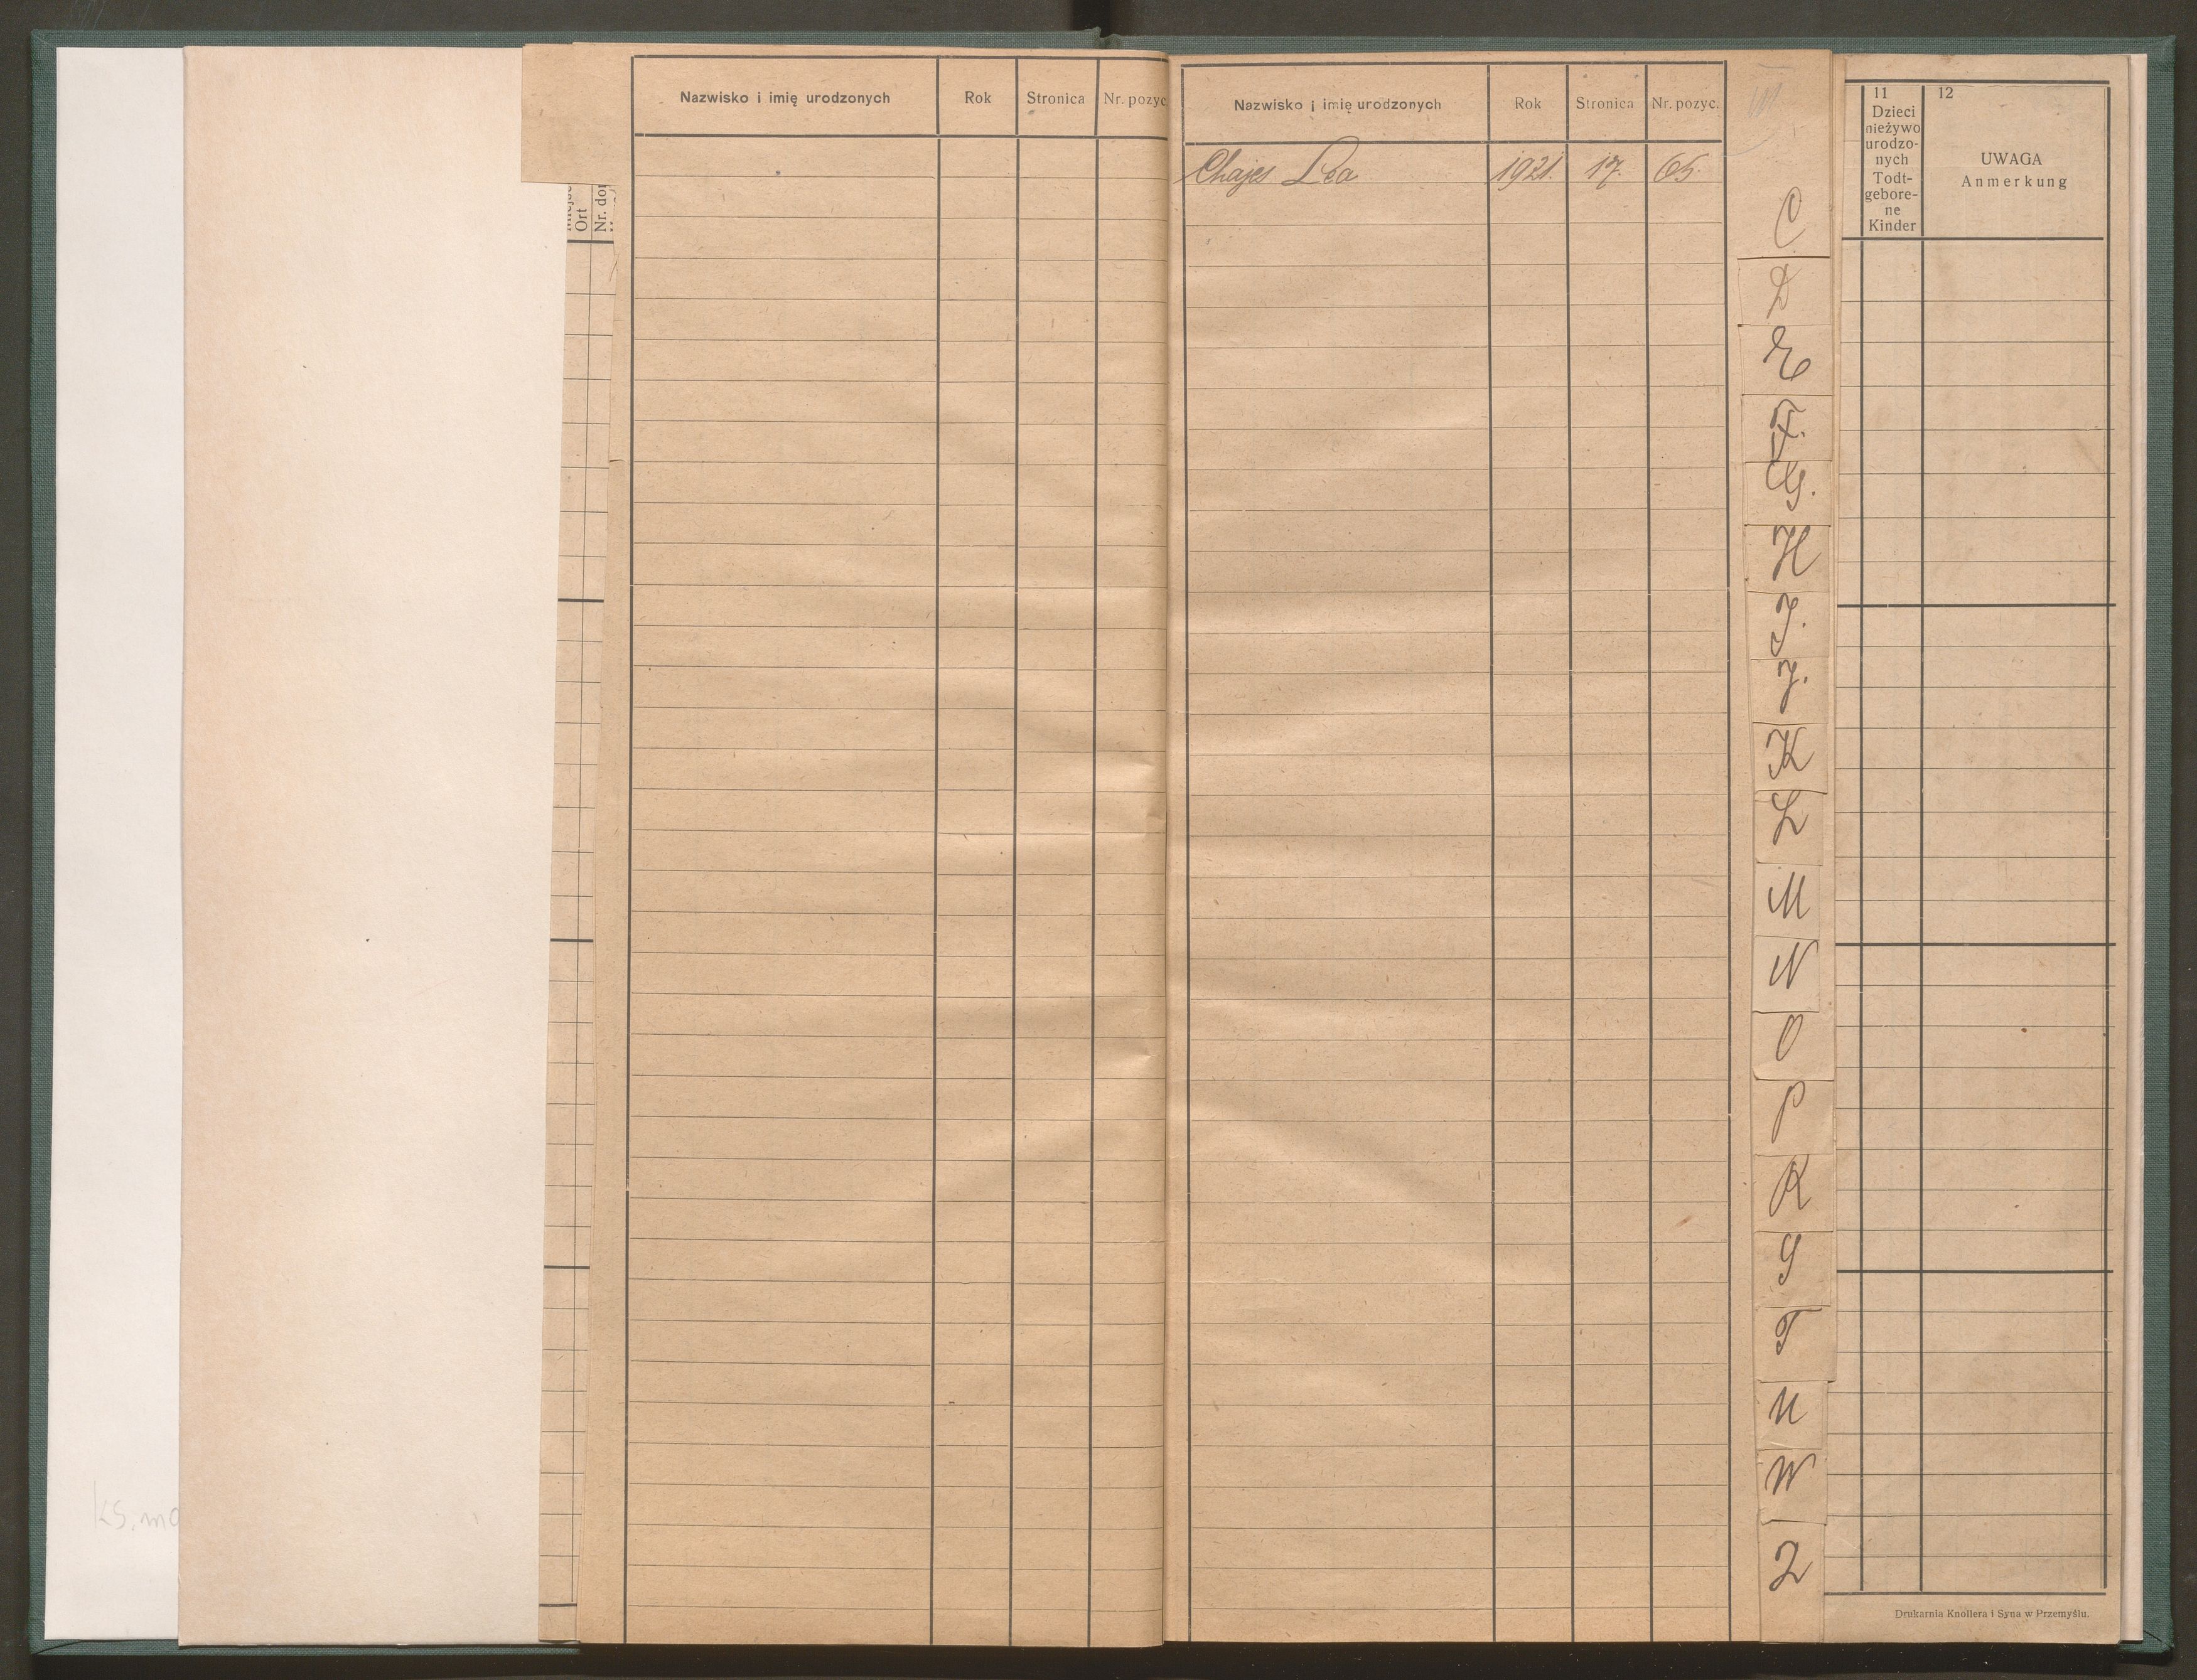 Ort
Nr. do
Nazwisko i imię urodzonych Rok Stronica Nr. pozyc
Nazwisko i imię urodzonych Rok Stronica Nr. pozyc.
Chajes Lea 1921. 17. 65.
C
D
E
F.
G.
H
I.
J.
K
L
M
N
O
P
R
S
T
U
W
Z
11
Dzieci
nieżywo
urodzo-
nych
Todt-
gebore-
ne
Kinder
12
UWAGA
Anmerkung
ks. mo
Drukarnia Knollera i Syna w Przemyślu.